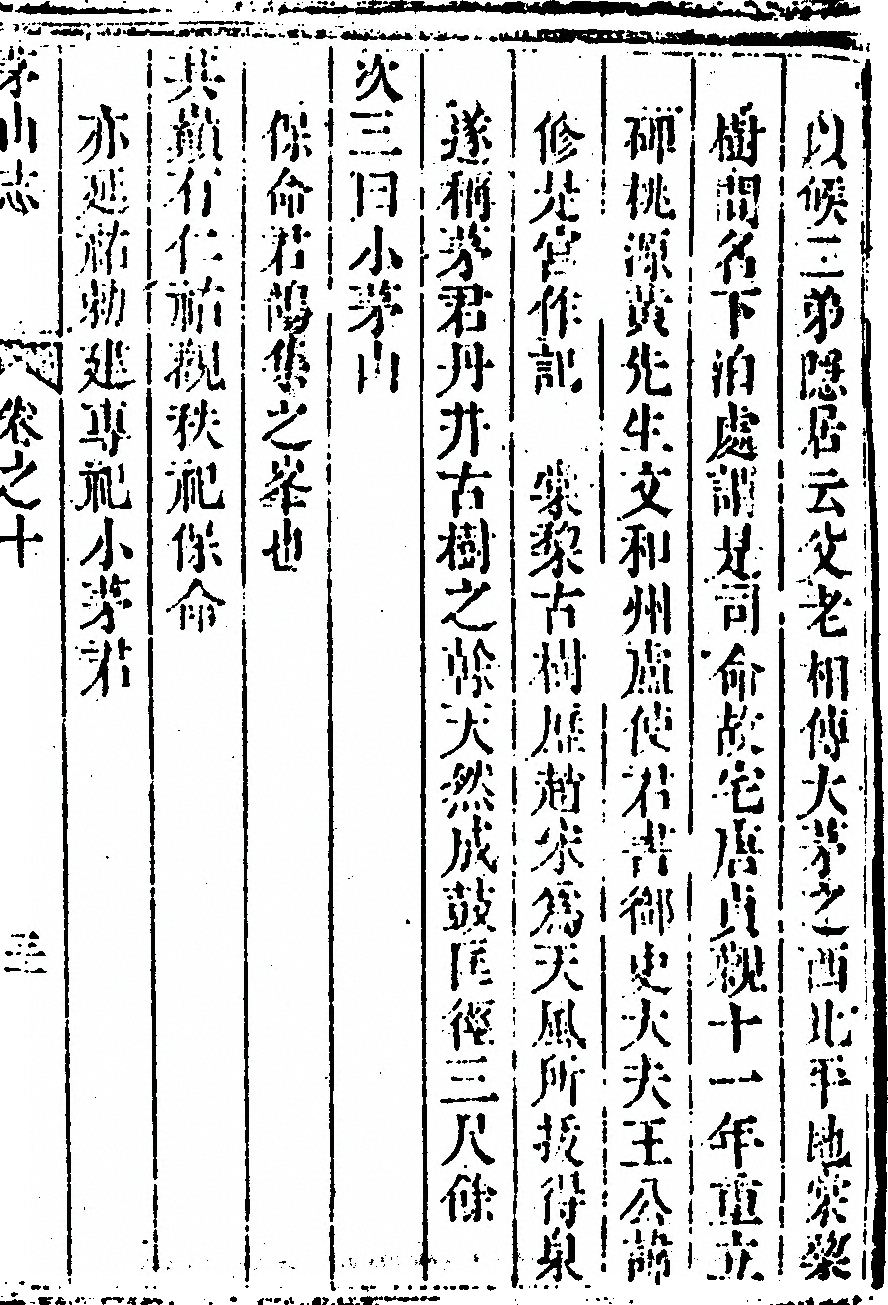 以候二弟隱居云父老相傳大茅之西北平地棠棃
樹間名下泊處謂是司命故宅唐貞觀十一年重立
碑桃源黃先生文和州盧使君書御史大夫王公
修是宮作記　棠黎古樹歷趙宋爲天風所拔得泉
遂稱茅君丹井古樹之幹天然成鼓匡徑三尺餘
次三曰小茅山
保命君鵠集之峯也
共巔有仁祐觀秩祀保命
亦延祐勅建專祀小茅君
茅山志　卷之十　三